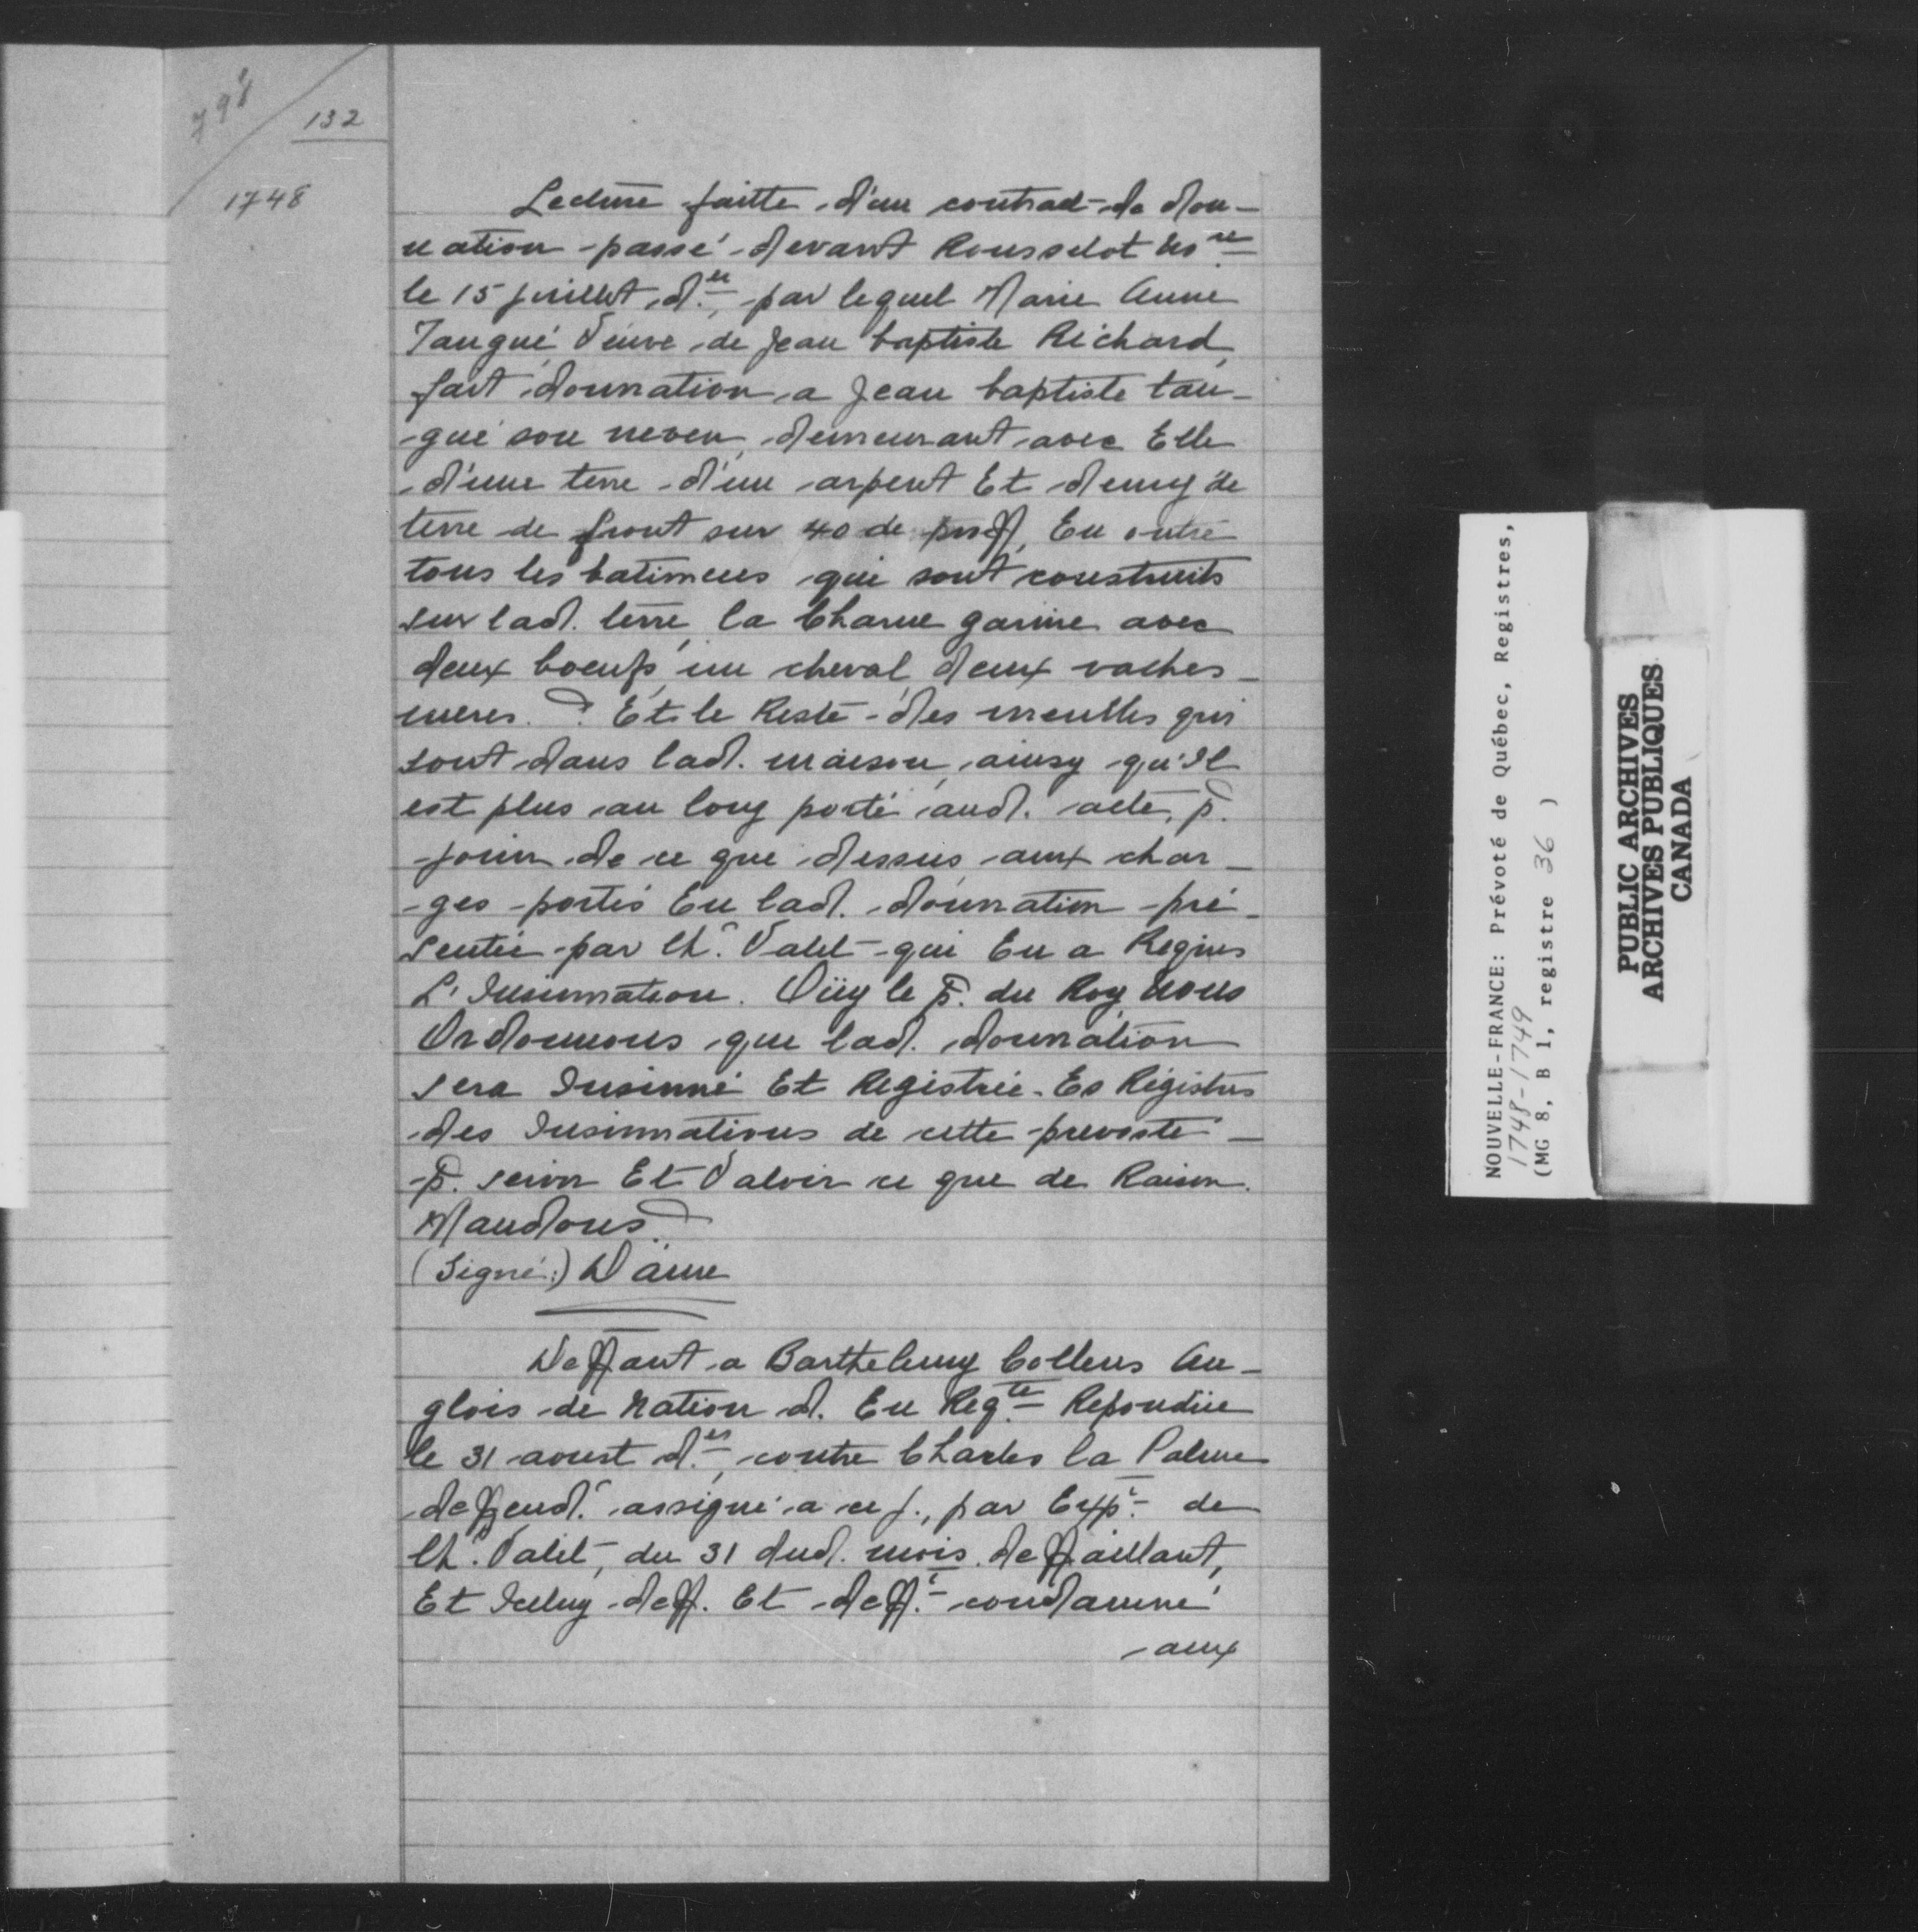 798
132
1748
Lecture faitte d'un contract de don-
nation passé devant Rousselot nore
le 15 juillet der, par lequel Marie Anne
Tangué Veuve de Jean baptiste Richard,
fait donnation a Jean baptiste tan-
gué son neveu, demeurant avec Elle
d'une terre d'un arpent Et demy de
terre de front sur 40 de proff, En outre
tous les batimens qui sont construits
sur lad. terre, la Charue garnie avec
deux boeufs, un cheval, deux vaches
meres. Et le Reste des meubles qui
sont dans lad. maison, ainsy qu'Il
est plus au long porté aud. acte, p.
jouir de ce que dessus aux char-
ges portés En lad. donnation pré-
sentée par Ch. Valet qui En a Requis
L'Insinuation. Oüy le P. du Roy, Nous
Ordonnons que lad. donnation
sera Insinué Et Registrée Es Régistres
des Insinuations de cette prevosté
p. servir Et Valoir ce que de Raison.
Mandons
(Signé:) Daine
Deffaut a Barthelemy Collens An-
glois de Nation d. En Reqte Repondüe
le 31 aoust der, contre Charles la Palme
deffend. assigné a ce j., par Expt de
Ch. Valet, du 31 dud. mois deffaillant,
Et Iceluy deff. Et defft condamné
aux
NOUVELLE-FRANCE: Prévoté de Québec, Registres,
1748-1749
(MG 8, B 1, registre 36 )
PUBLIC ARCHIVES
ARCHIVES PUBLIQUES
CANADA